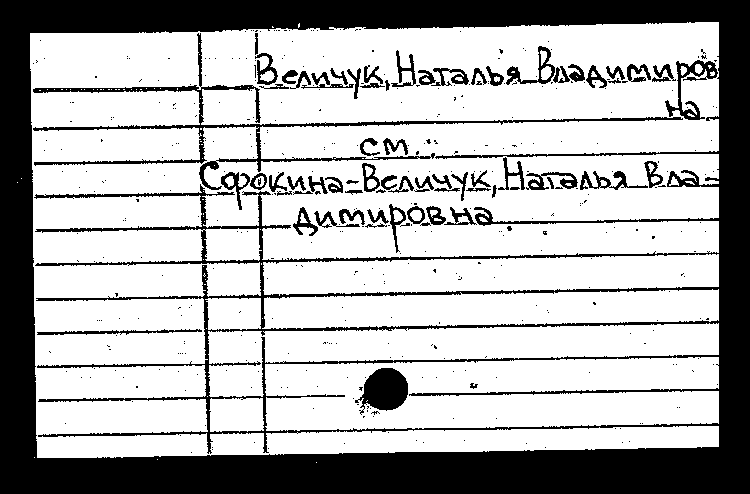 Величук, Наталья Владимиров
на
см.:
Сорокина-Величук, Наталья Вла-
димировна.